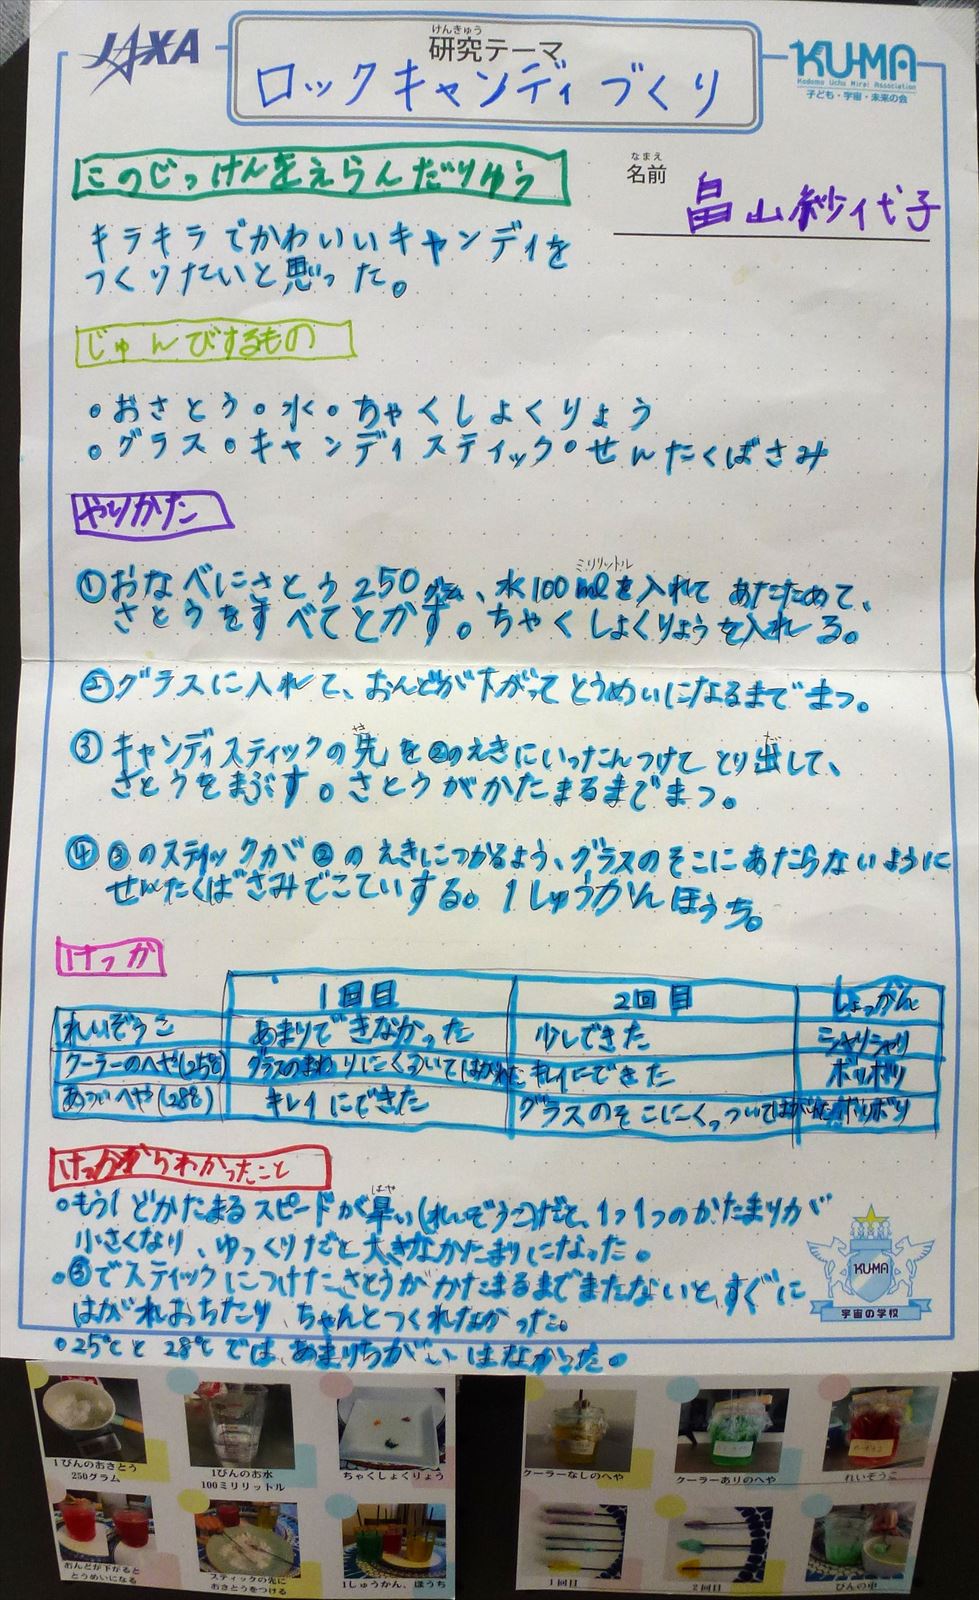 JAXA
けんきゅう
研究テーマ
ロックキャンディづくり
KU-MA
Kodomo Uchu Mirai Association
子ども・宇宙・未来の会
このじっけんをえらんだりゆう
なまえ
名前 畠山紗代子
キラキラでかわいいキャンディを
つくりたいと思った。
じゅんびするもの
・おさとう・水・ちゃくしょくりょう
・グラス・キャンディスティック・せんたくばさみ
やりかた
ミリリットル
①おなべにさとう250グラム、水100mlを入れてあたためて、
さとうをすべてとかす。ちゃくしょくりょうを入れる。
②グラスに入れて、おんどが下がってとうめいになるまでまつ。
さき だ
③キャンディスティックの先を②のえきにいったんつけてとり出して、
さとうをまぶす。さとうがかたまるまでまつ。
④③のスティックが②のえきにつかるよう、グラスのそこにあたらないように
せんたくばさみでこていする。1しゅうかんほうち。
けっか
1回目 2回目 しょっかん
れいぞうこ あまりできなかった 少しできた シャリシャリ
クーラーのへや(25℃) グラスのまわりにくっついてはがれた キレイにできた ボリボリ
あついへや(28℃) キレイにできた グラスのそこにくっついてはがれた ボリボリ
けっかからわかったこと
はや
・もう1どかたまるスピードが早い(れいぞうこ)だと、1つ1つのかたまりが
小さくなり、ゆっくりだと大きなかたまりになった。
・③でスティックにつけたさとうがかたまるまでまたないと、すぐに
はがれおちたり、ちゃんとつくれなかった。
・25℃と28℃では、あまりちがいはなかった。
KUMA
宇宙の学校
1びんのおさとう
250グラム
1びんのお水
100ミリリットル
ちゃくしょくりょう
クーラーなしのへや
クーラーありのへや
れいぞうこ
おんどが下がると
とうめいになる
スティックの先に
おさとうをつける
1しゅうかん、ほうち
1回目
2回目
びんの中